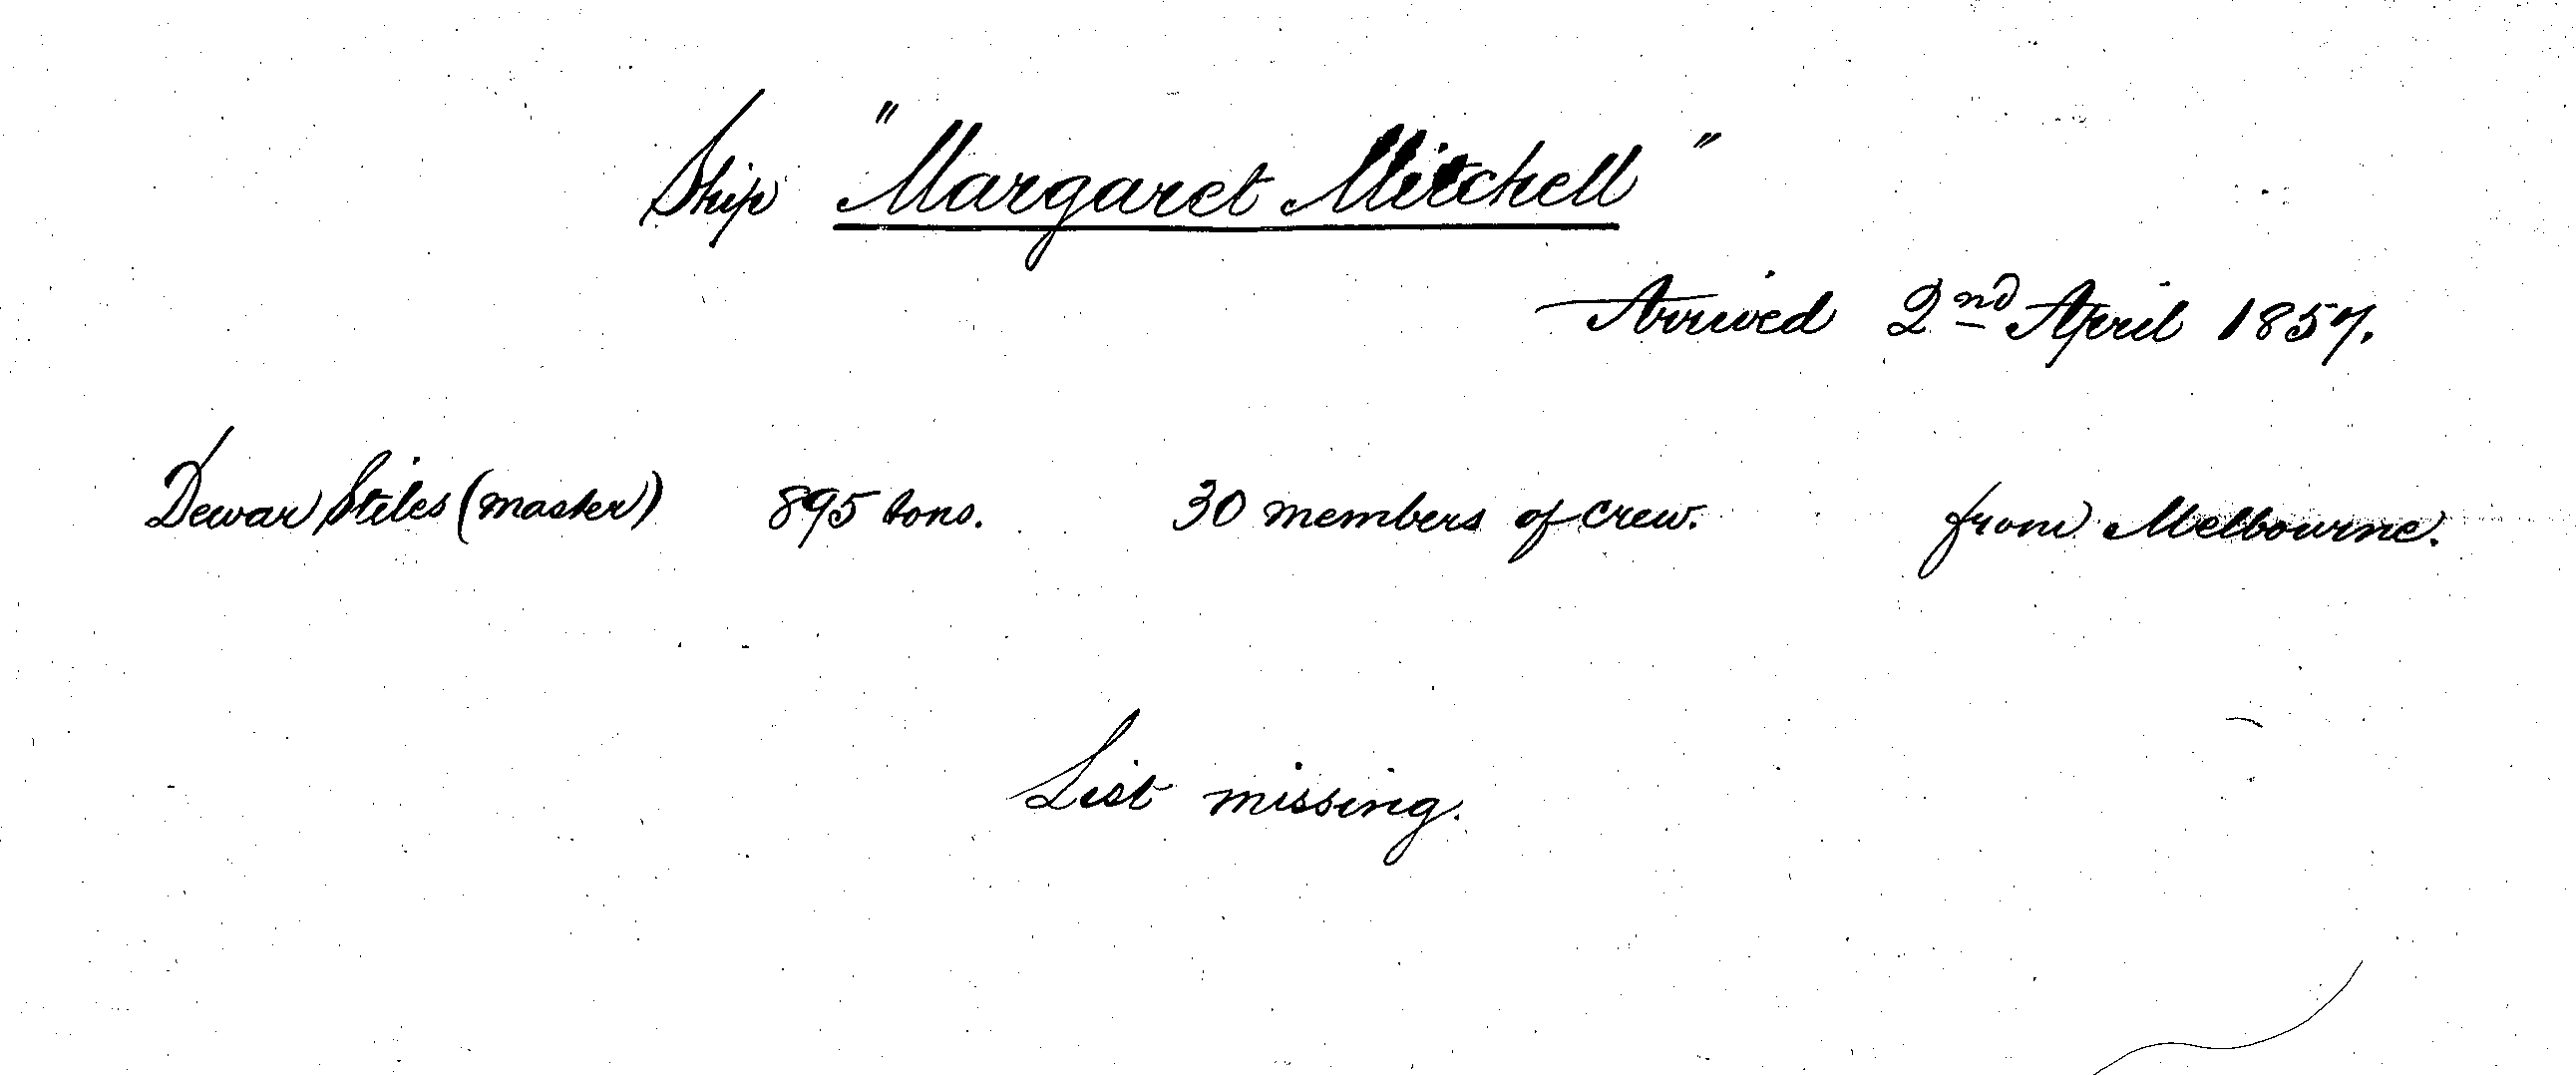 Ship "Margaret Mitchell"
Arrived 2nd April 1857.
Dewar Stiles (master) 895 tons. 30 members of crew. from Melbourne.
List missing.